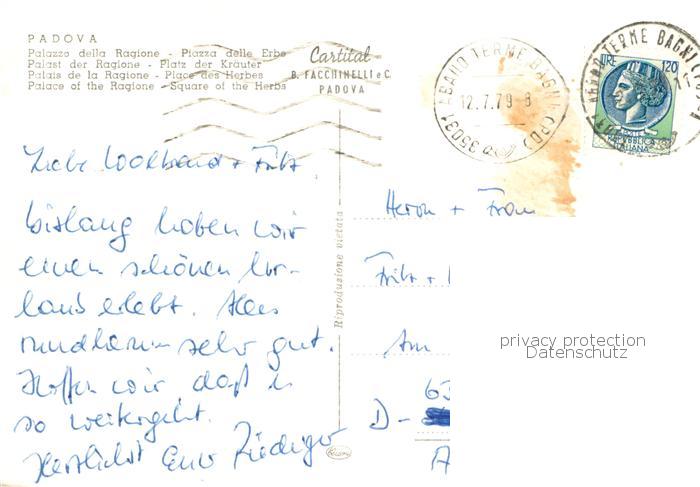 PADOVA
Palazzo della Ragione - Piazza delle Erbe
Palast der Ragione - Platz der Kräuter
Palais de la Ragione - Place des Herbes
Palace of the Ragione - Square of the Herbs
Cartital
B. FACCHINELLI e C.
PADOVA
35031 ABANO TERME BAGNI (PD)
12.7.79-8
ABANO TERME BAGNI
LIRE 120
REPUBBLICA
ITALIANA
Liebe + Fritz
bislang haben wir
einen schönen Ur-
laub erlebt. Alles
rundherum sehr gut.
Hoffen wir daß es
so weitergeht.
Herzlichst Eure
Riproduzione vietata
Herrn + Frau
Fritz +
Am
63
D -
A
privacy protection
Datenschutz